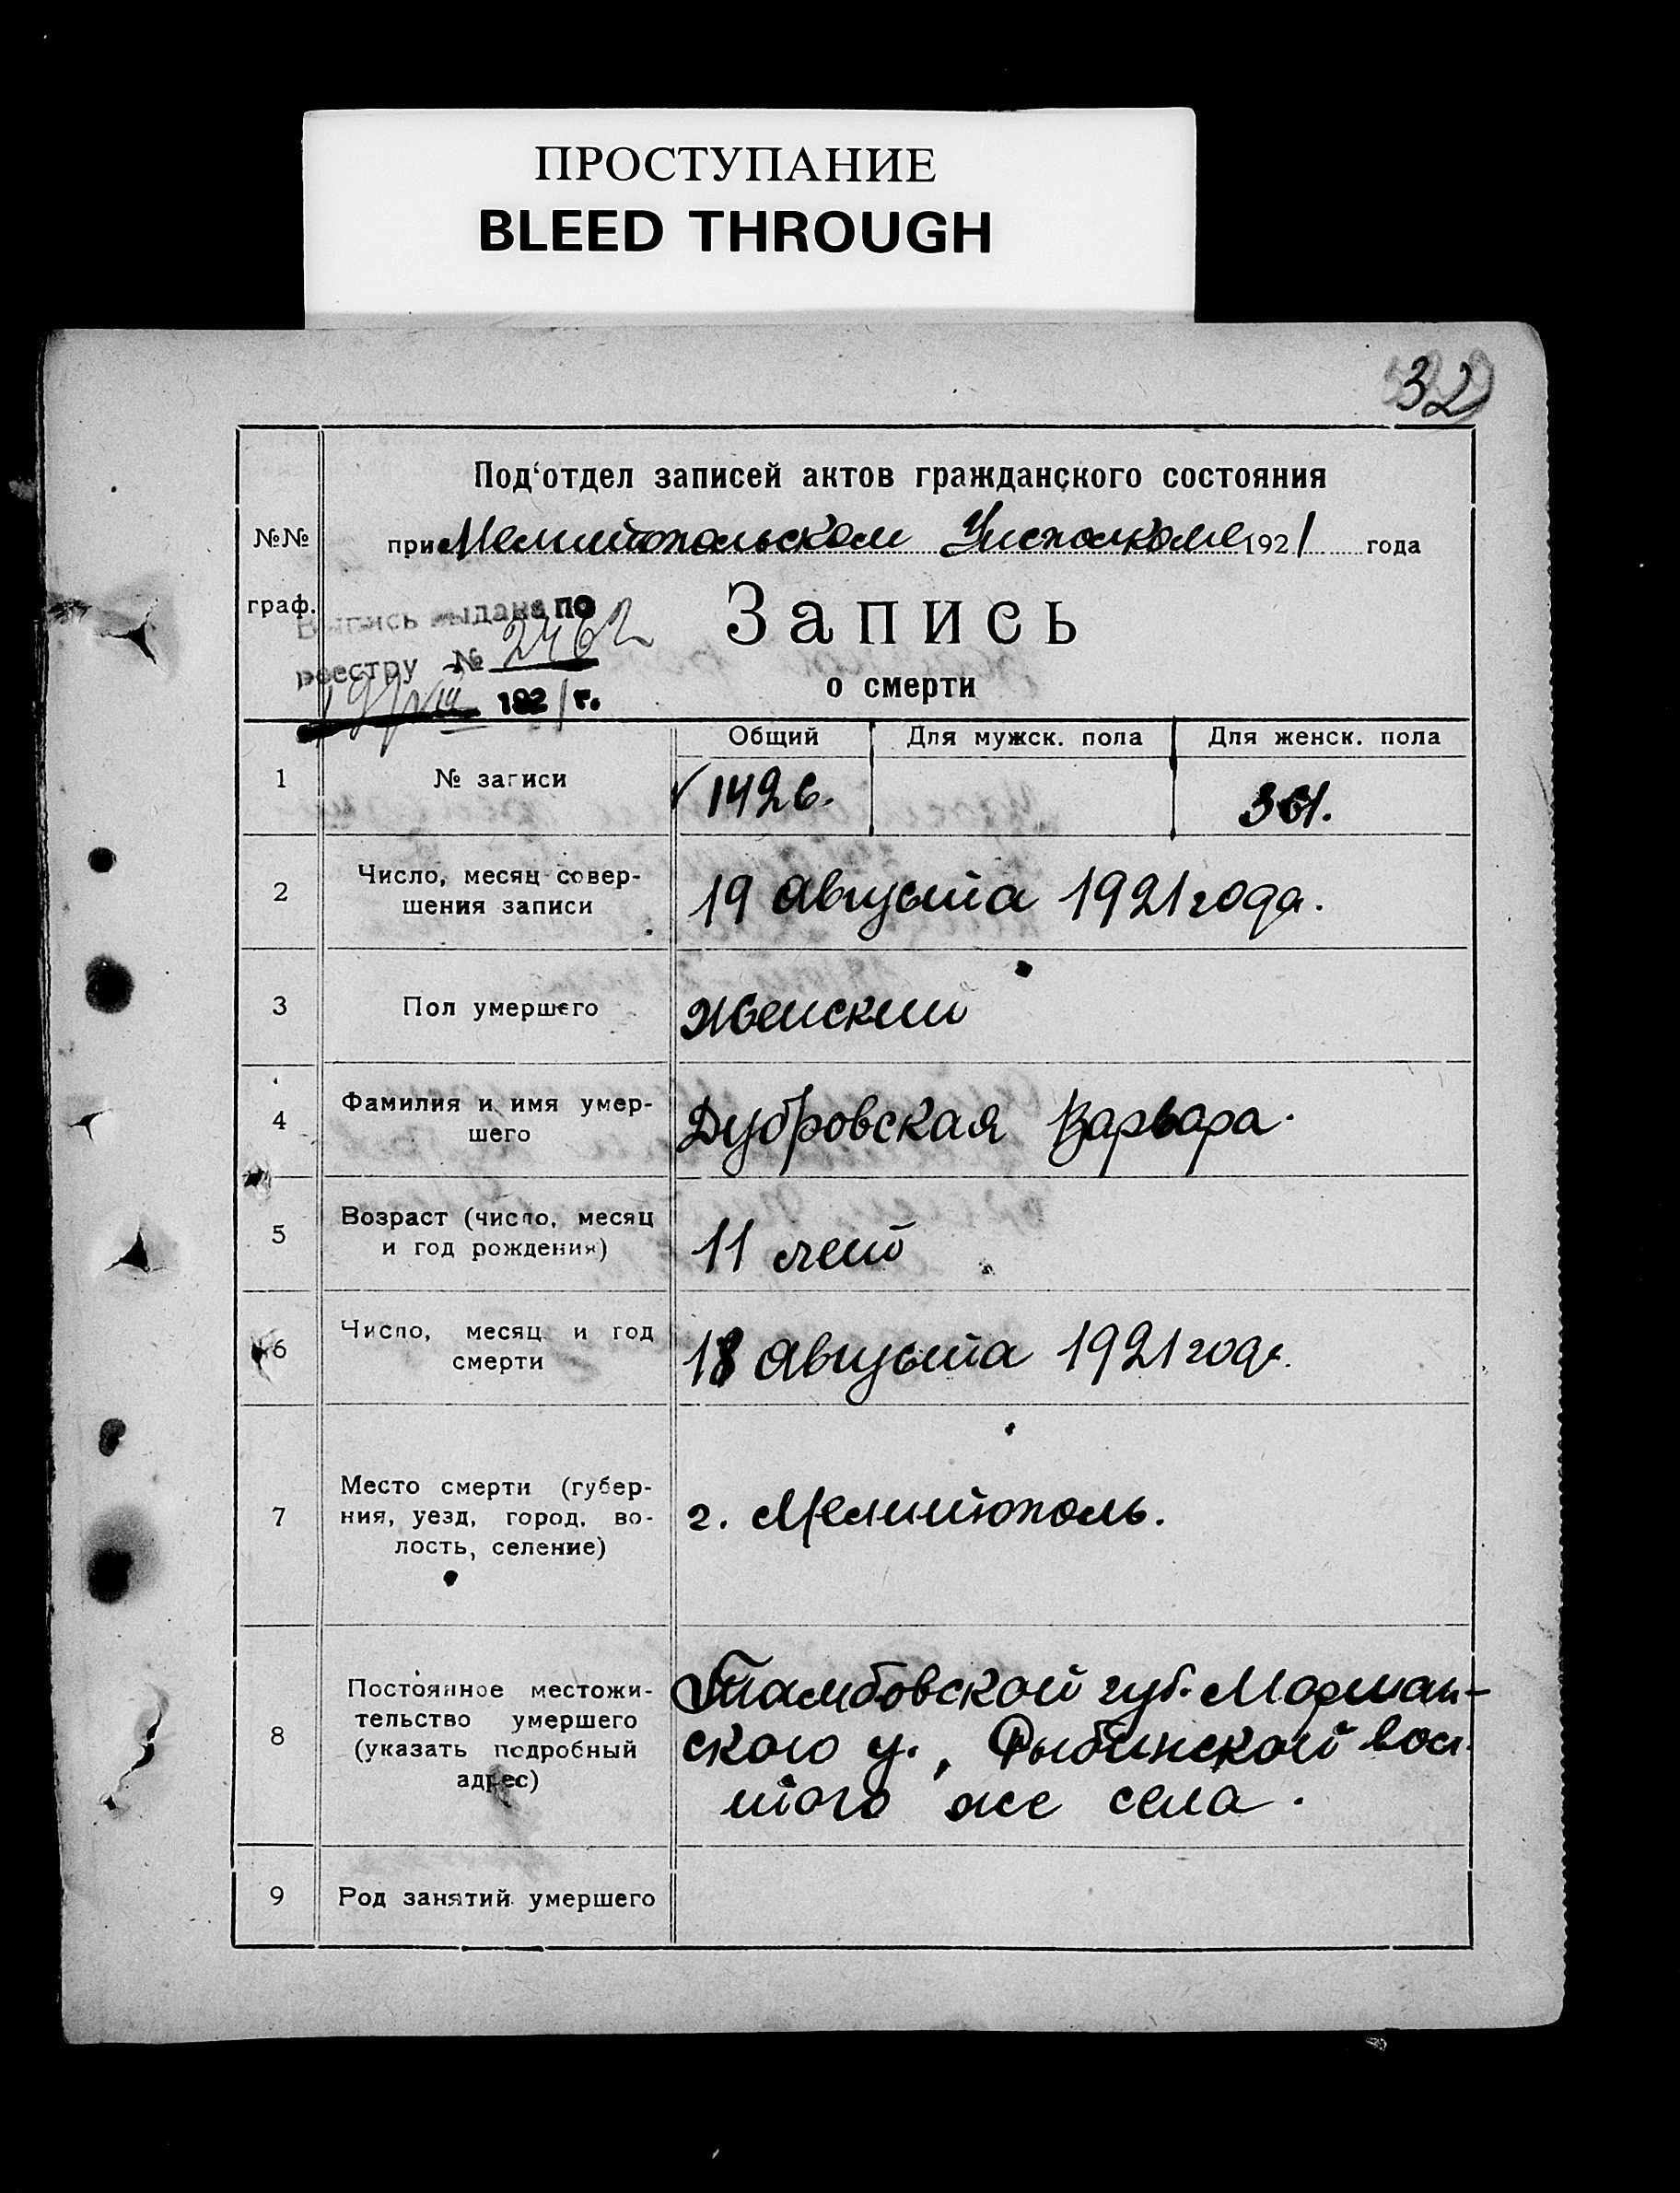 ПРОСТУПАНИЕ
BLEED THROUGH
32
Под‘отдел записей актов гражданского состояния
№№ граф.
при Мелитопольском Уисполкоме 1921 года
Выпись выдана по
реестру № 2462
19/VIII 1921 г.
Запись
о смерти
Общий Для мужск. пола Для женск. пола
1 № записи 1426. 361.
2 Число, месяц совер-
шения записи
19 августа 1921 года.
3 Пол умершего Женский
4 Фамилия и имя умер-
шего
Дубровская Варвара.
5 Возраст (число, месяц
и год рождения)
11 лет
6 Число, месяц и год
смерти
18 августа 1921 года.
7 Место смерти (губер-
ния, уезд, город, во-
лость, селение)
г. Мелитополь.
8 Постоянное местожи-
тельство умершего
(указать подробный
адрес)
Тамбовской губ. Моршан-
ского у., Рыбинской вол.
того же села.
9 Род занятий умершего